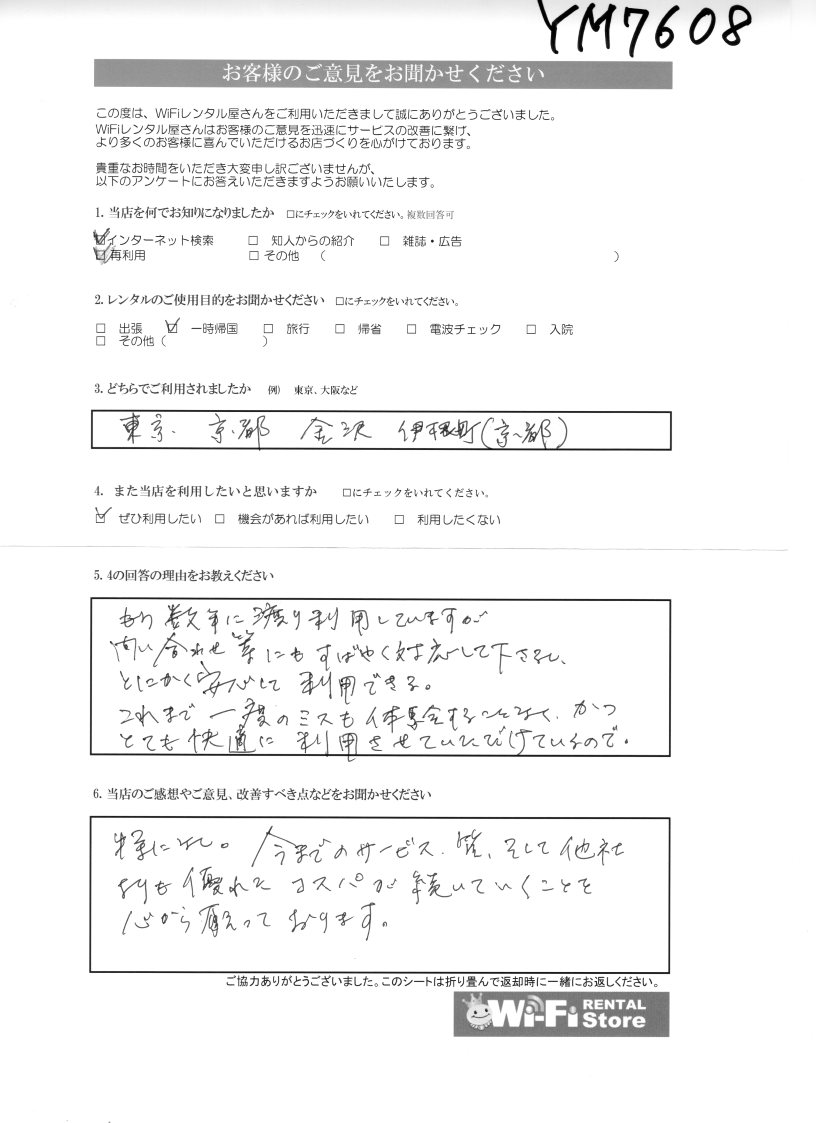 YM7608
お客様のご意見をお聞かせください
この度は、WiFiレンタル屋さんをご利用いただきまして誠にありがとうございました。
WiFiレンタル屋さんはお客様のご意見を迅速にサービスの改善に繋げ、
より多くのお客様に喜んでいただけるお店づくりを心がけております。
貴重なお時間をいただき大変申し訳ございませんが、
以下のアンケートにお答えいただきますようお願いいたします。
1. 当店を何でお知りになりましたか □にチェックをいれてください。複数回答可
☑インターネット検索 □ 知人からの紹介 □ 雑誌・広告
☑再利用 □ その他 ( )
2. レンタルのご使用目的をお聞かせください □にチェックをいれてください。
□ 出張 ☑ 一時帰国 □ 旅行 □ 帰省 □ 電波チェック □ 入院
□ その他 ( )
3. どちらでご利用されましたか 例) 東京、大阪など
東京. 京都 金沢 伊根町(京都)
4. また当店を利用したいと思いますか □にチェックをいれてください。
☑ ぜひ利用したい □ 機会があれば利用したい □ 利用したくない
5. 4の回答の理由をお教えください
もう数年に渡り利用していますが
問い合わせ等にもすばやく対応して下さるし、
とにかく安心して利用できる。
これまで一度のミスも体験することなく、かつ
とても快適に利用させていただけているので。
6. 当店のご感想やご意見、改善すべき点などをお聞かせください
特になし。今までのサービス、質、そして他社
よりも優れたコスパが続いていくことを
心から願っております。
ご協力ありがとうございました。このシートは折り畳んで返却時に一緒にお返しください。
Wi-Fi RENTAL Store